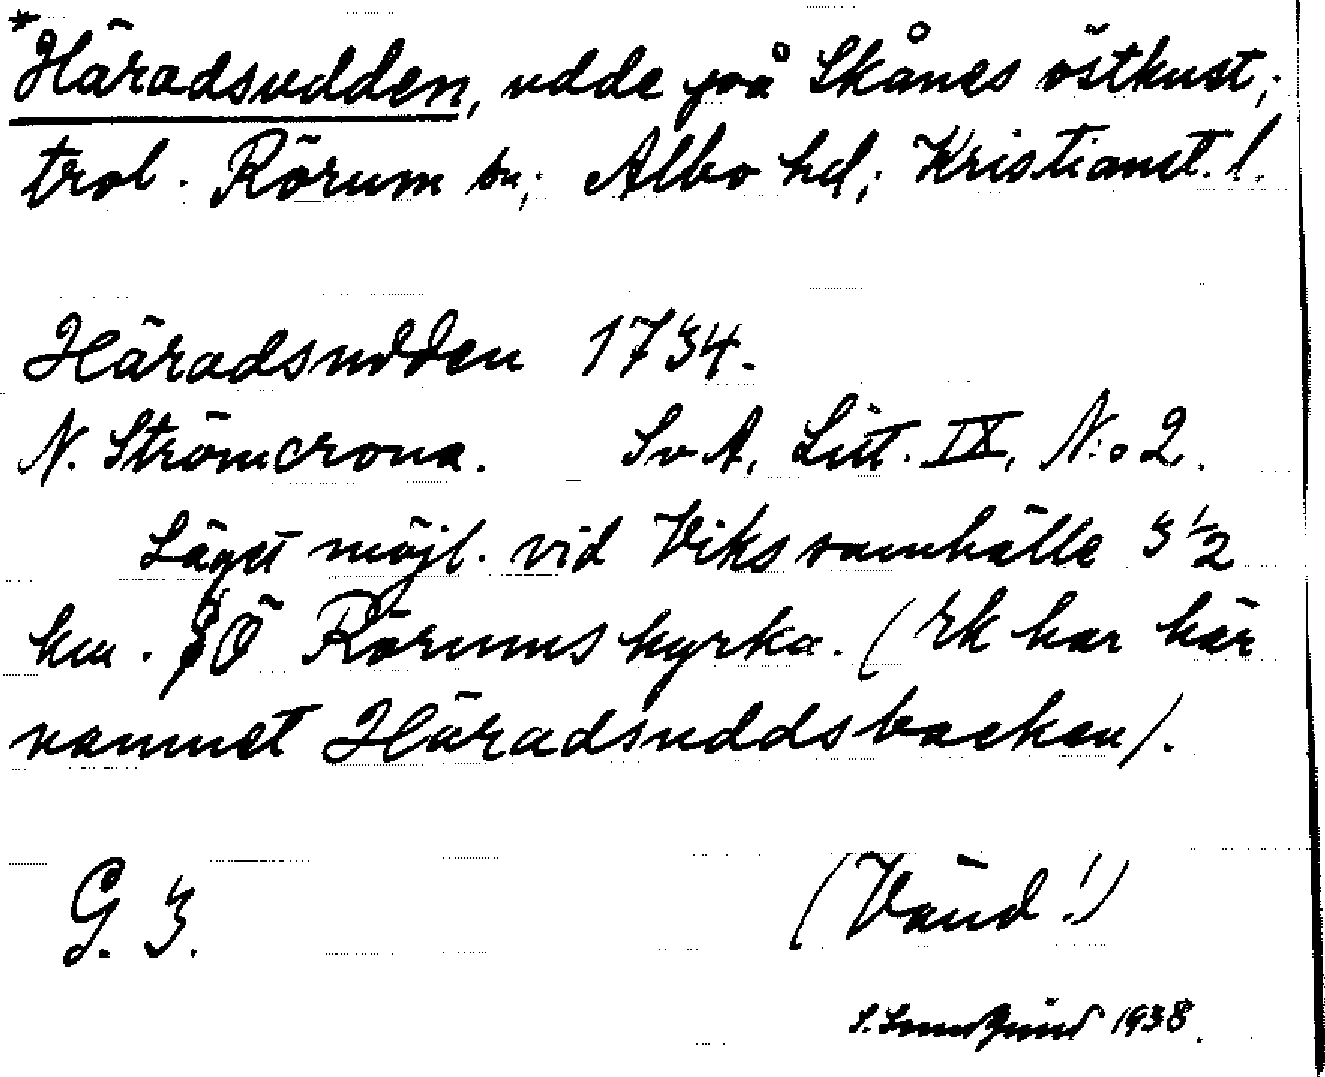 *Häradsudden, udde på Skånes östkust;
trol. Rörum sn; Albo hd; Kristianst. l.
Häradsudden 1734.
N. Strömcrona. SvA, Litt. IX, N:o 2.
Läget möjl. vid Viks samhälle 3 1/2
km. SÖ Rörums kyrka. (Ek har här
namnet Häradsuddsbacken).
G. 3.
(Vänd!)
1938.